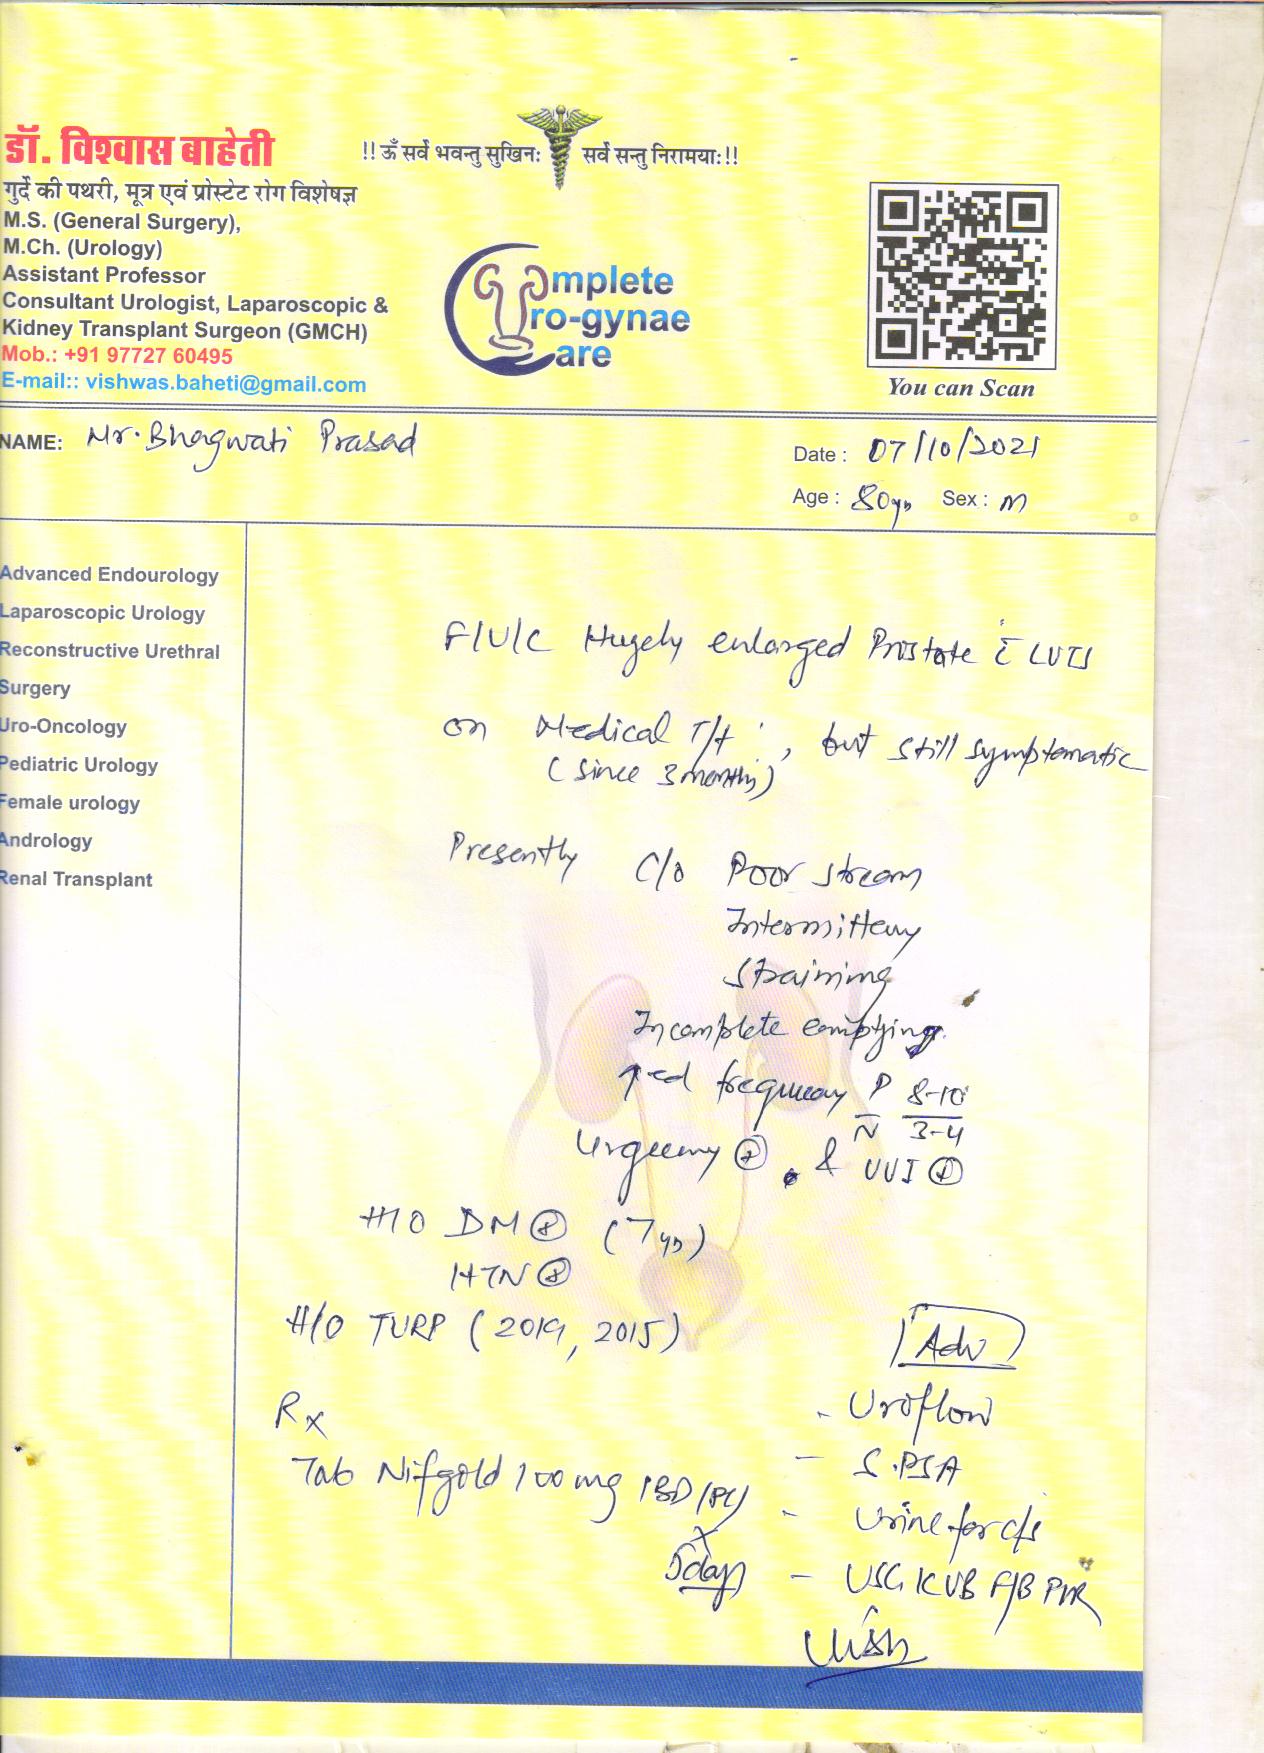 डॉ. विश्वास बाहेती
गुर्दे की पथरी, मूत्र एवं प्रोस्टेट रोग विशेषज्ञ
M.S. (General Surgery),
M.Ch. (Urology)
Assistant Professor
Consultant Urologist, Laparoscopic &
Kidney Transplant Surgeon (GMCH)
Mob.: +91 97727 60495
E-mail:: vishwas.baheti@gmail.com
!! ऊँ सर्वे भवन्तु सुखिनः सर्वे सन्तु निरामयाः!!
Complete
Uro-gynae
Care
You can Scan
NAME: Mr. Bhagwati Prasad
Date : 07/10/2021
Age : 80yr Sex : M
Advanced Endourology
Laparoscopic Urology
Reconstructive Urethral
Surgery
Uro-Oncology
Pediatric Urology
Female urology
Andrology
Renal Transplant
F/U/C Hugely enlarged Prostate c̄ LUTS
on Medical T/t, but still symptomatic
(since 3 months)
Presently C/o Poor stream
Intermittency
Straining
Incomplete emptying
↑ed frequency D 8-10
N 3-4
Urgency ⊕ & UUI ⊕
H/O DM ⊕ (7yr)
HTN ⊕
H/O TURP (2019, 2015)
Rx
Tab Nifgold 100mg 1BD (PC)
x
5days
Adv
- Uroflow
- S.PSA
- Urine for c/s
- USG KUB F/B PVR